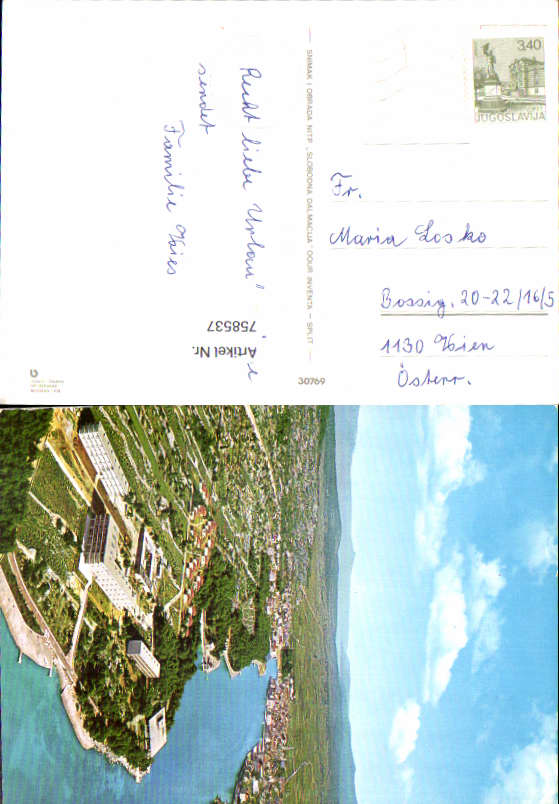 Recht liebe Urlaub
sendet
Familie
Artikel Nr.
758537
SNIMAK I OBRADA NITP „SLOBODNA DALMACIJA" OOUR INVENTA — SPLIT
30769
3,40
JUGOSLAVIJA
Fr.
Maria Losko
Bossig. 20-22/16/5
1130 Wien
Österr.